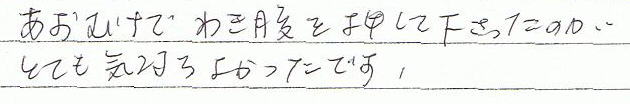 あおむけで わき腹を押して下さったのが‥
とても気持ちよかったです,